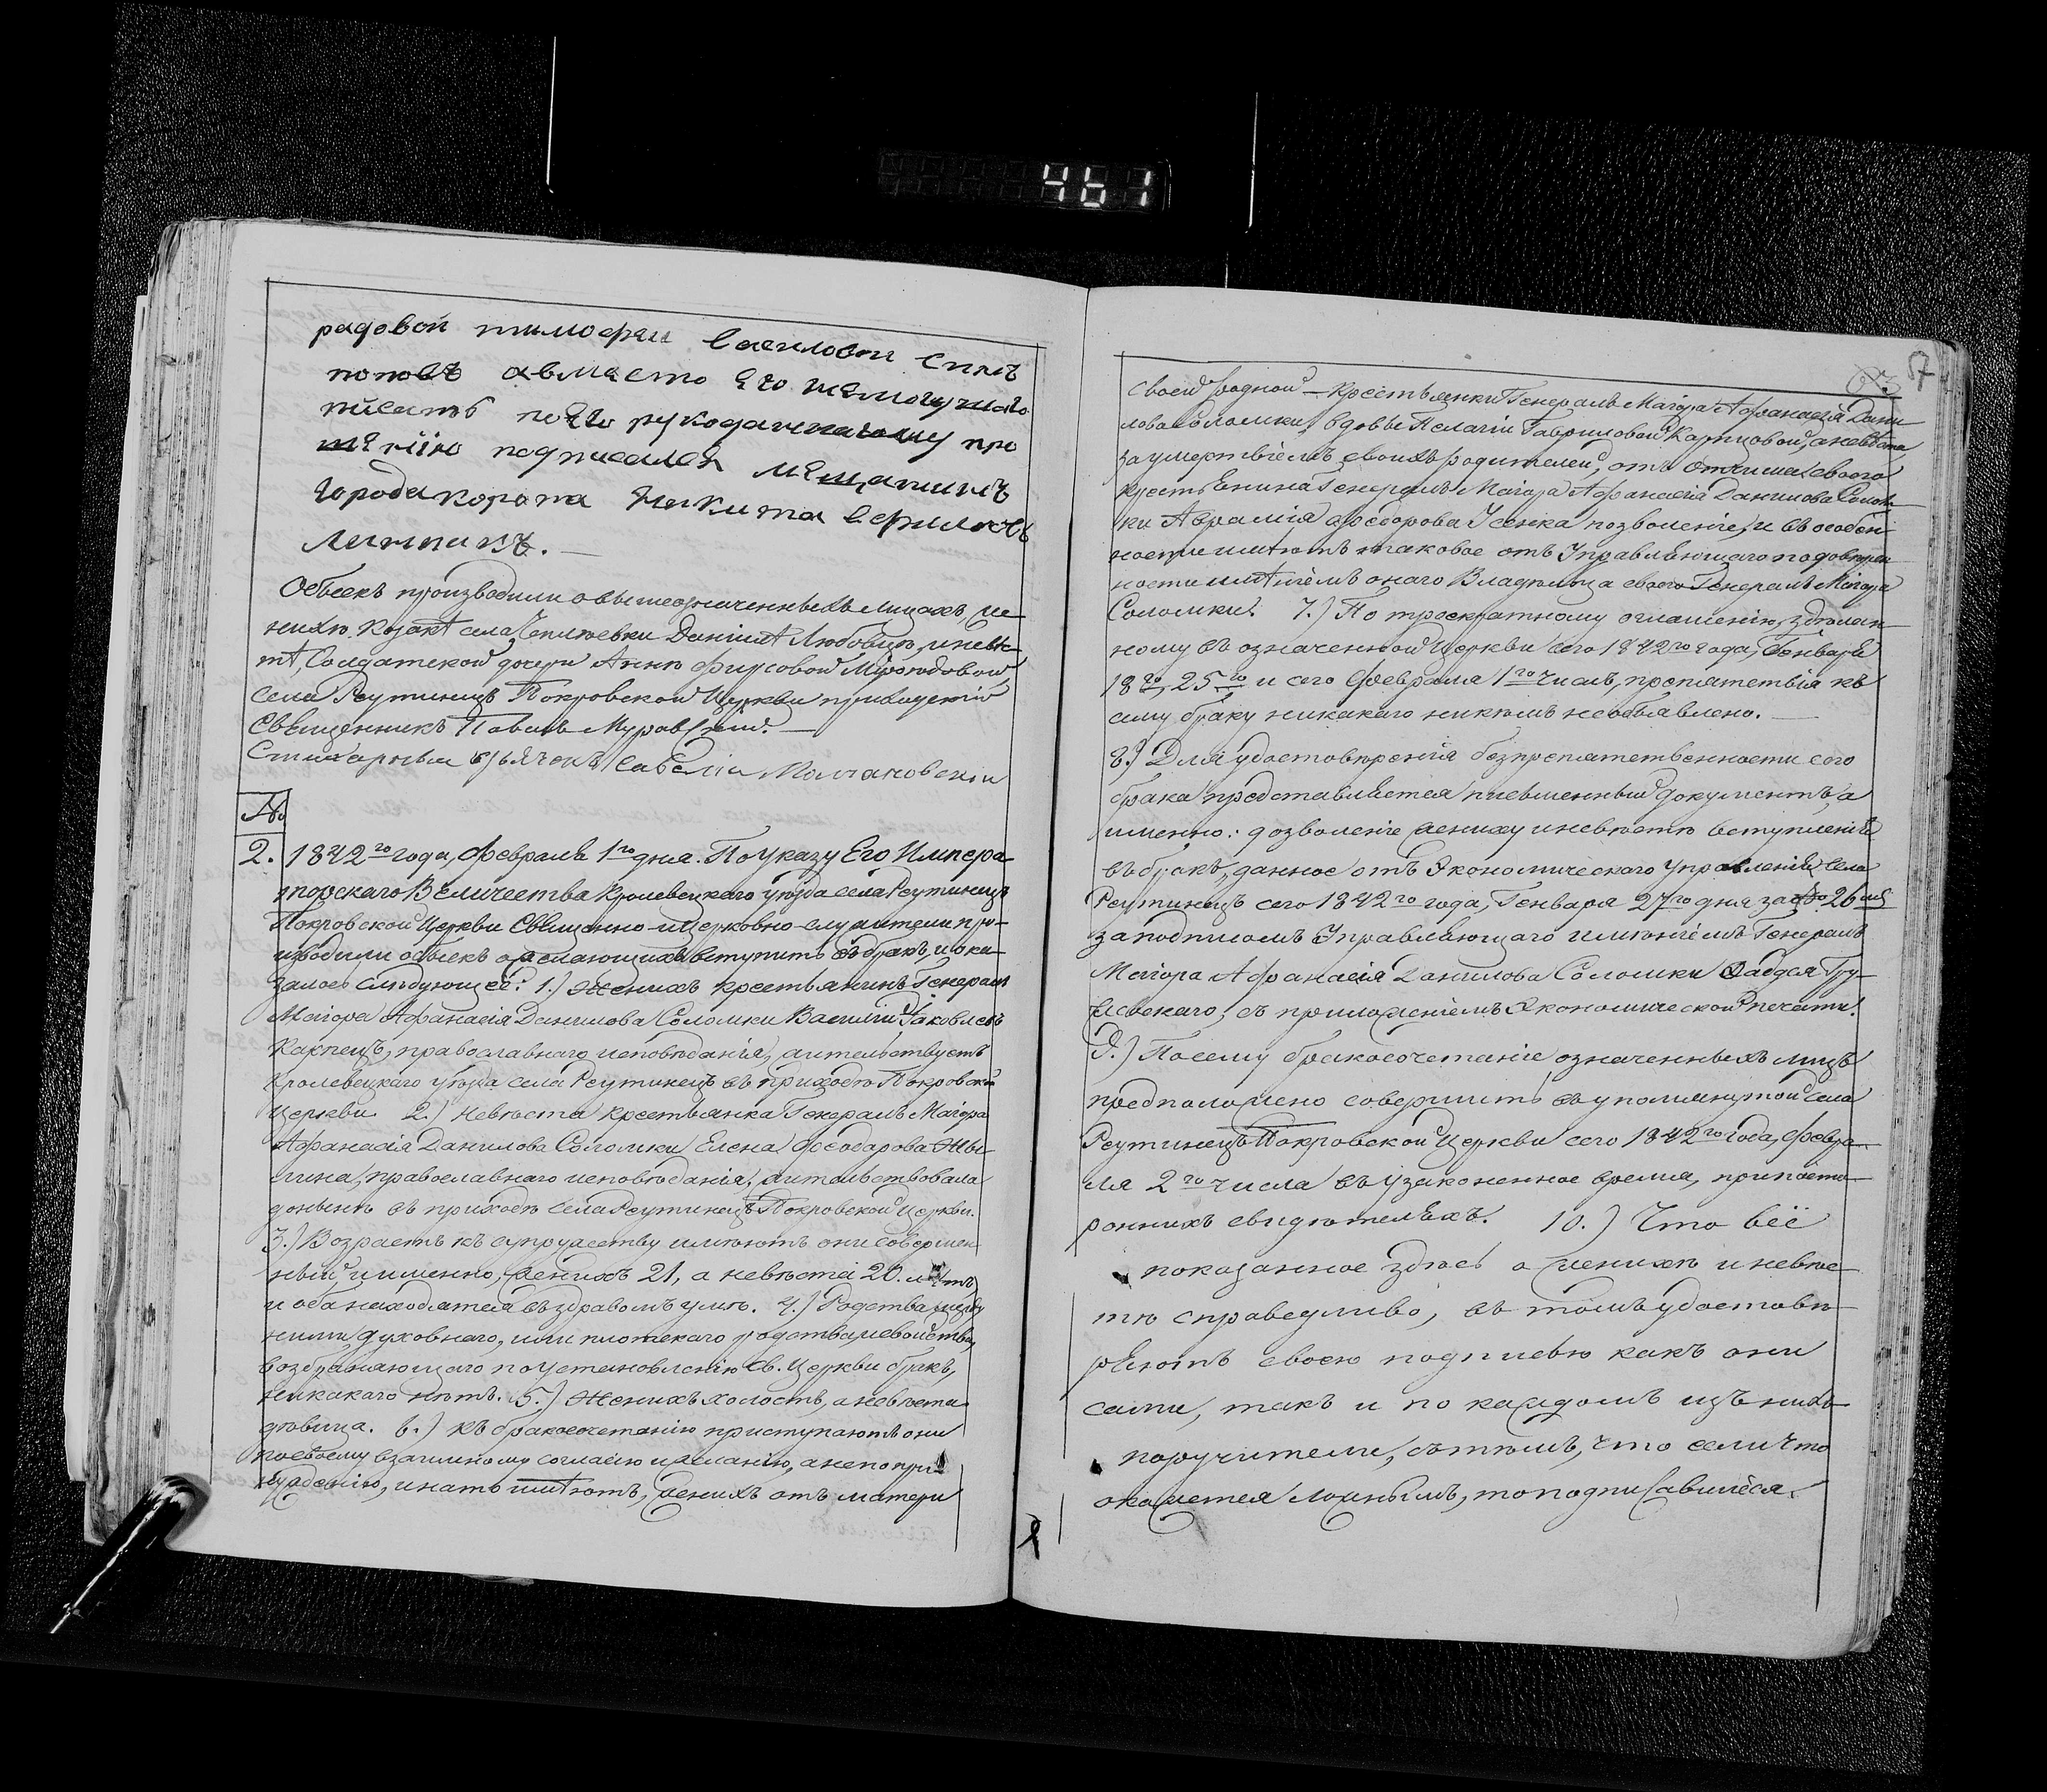 461
рядовой тимофеи Василовои сынъ
поповъ авместо его немогущаго
писать по его рукоданному про
шенїю подписался мещанинъ
города коропа Никита
Обыскъ производили о вышеозначенныхъ лицахъ, же
нихѣ козакѣ села Даніилѣ Любовцю, и невѣс
тѣ, Солдатской дочери Аннѣ Фирсовой
села Реутинецъ Покровской Церкви
Священникъ Павелъ Муравскій.
Дьячокъ Савелій
№
2.
1842го года, Февраля 1го дня. По указу Его Импера
торскаго Величества Кролевецкаго уѣзда села Реутинецъ
Покровской Церкви Священно-и Церковно-служители про-
изводили обыскъ о желающихъ вступить въ бракъ, и ока-
залось слѣдующеё: 1.) Женихъ крестьянинъ Генералъ
Маіора Афанасія Данилова Соломки Василій Іаковлевъ
Карпецъ, православнаго исповѣданія, жительствуетъ
Кролевецкаго уѣзда села Реутинецъ въ приходѣ Покровской
Церкви 2.) Невѣста крестьянка Генералъ Маіора
Афанасія Данилова Соломки Елена Феодорова
православнаго исповѣданія, жительствовала
донынѣ въ приходѣ села Реутинецъ Покровской Церкви.
3.) Возрастъ къ супружеству имѣютъ они совершен-
ный, и именно, женихъ 21, а невѣста 20. лѣтъ
и оба находятся въ здравомъ умѣ. 4.) Родства между
ними духовнаго, или плотскаго родства, и свойства,
возбраняющаго по установленію Св. Церкви бракъ,
никакаго нѣтъ. 5.) Женихъ холостъ, а невѣста
дѣвица. 6.) Къ бракосочетанію приступаютъ они
посвоему взаимному согласію и желанію, а не по при-
нужденію, и нато имѣютъ, женихъ отъ матери
63 7
своей родной - крестьянки Генералъ Маіора Афанасія Дани
лова Соломки, вдовы Пелагіи Гавриловой Карпцовой, а невѣста
за умертвіемъ своихъ родителей, отъ отчима своего
крестьянина Генералъ Маіора Афанасія Данилова Солом-
ки Авраамія Феодорова Усенка позволеніе, и въ особен-
ности имѣютъ таковое отъ Управляющаго по довѣрен
ности имѣніемъ онаго Владѣльца своего Генералъ Маіора
Соломки. 7.) По троекратному оглашенію, здѣлан-
ному въ означенной Церкви сего 1842го года, Генваря
18го, 25го и сего Февраля 1го чиселъ, препятствія къ
сему браку никакаго никѣмъ необъявлено.
8.) Для удостовѣренія безпрепятственности сего
брака представляется письменный документъ, а
именно: дозволеніе жениху и невѣстѣ вступленія
въ бракъ, данное отъ Экономическаго управленія села
Реутинецъ сего 1842го года, Генваря 27го дня за № 26мъ
заподписомъ Управляющаго имѣніемъ Генералъ
Маіора Афанасія Данилова Соломки
съ приложеніемъ Экономической печати.
9.) Посему бракосочетаніе означенныхъ лицъ
предположено совершить въ упомянутой села
Реутинецъ Покровской Церкви сего 1842го года, Февра-
ля 2го числа въ узаконенное время, при посто-
роннихъ свидѣтеляхъ. 10.) Что всё
показанное здѣсь о женихѣ и невѣс-
тѣ справедливо, въ томъ удостовѣ-
ряютъ своею подписью какъ они
сами, такъ и по каждомъ изъ нихъ
поручители, сътѣмъ, что если что
окажется ложнымъ, то подписавшіеся